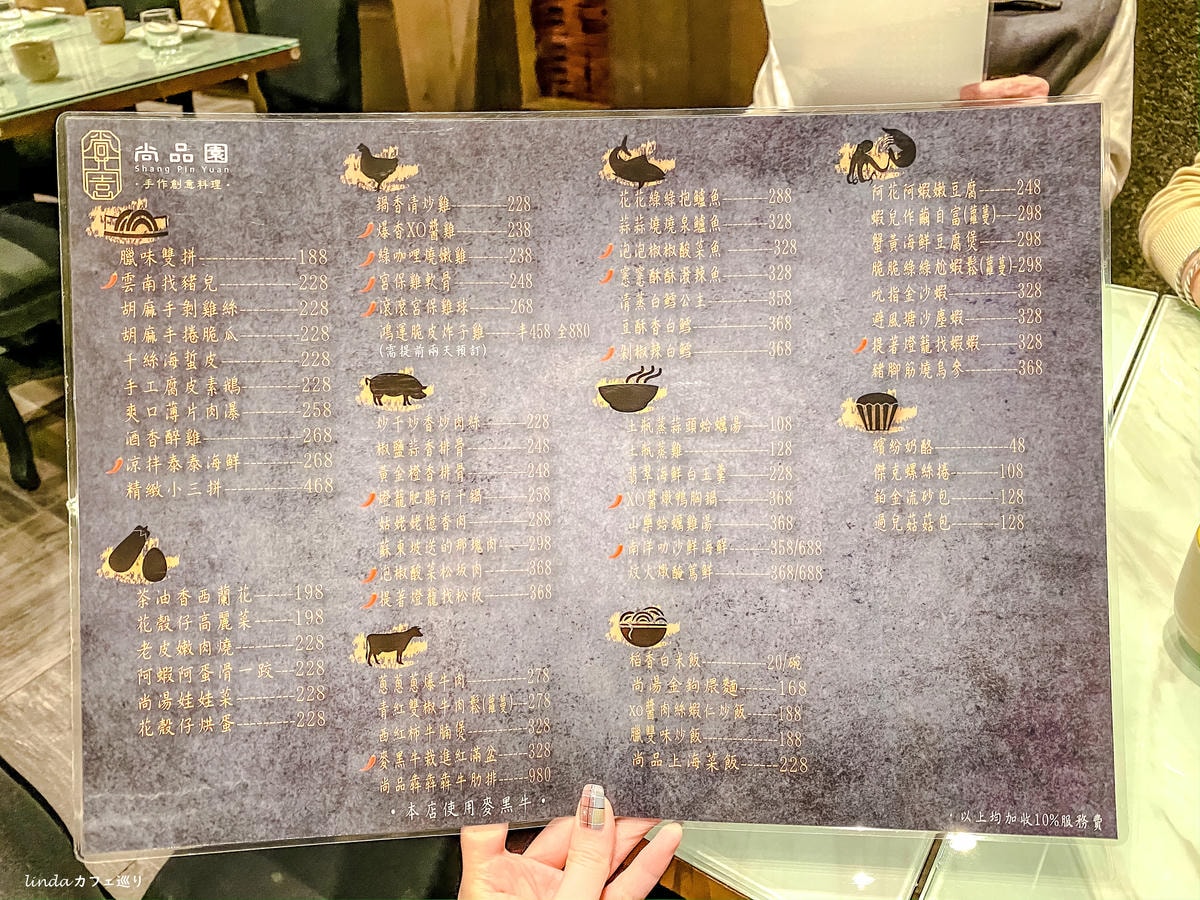 尚品園
Shang Pin Yuan
·手作創意料理·
臘味雙拼 188
雲南找豬兒 228
胡麻手剝雞絲 228
胡麻手捲脆瓜 228
千絲海蜇皮 228
手工腐皮素鵝 228
爽口薄片肉瀑 258
酒香醉雞 268
涼拌泰泰海鮮 268
精緻小三拼 468
茶油香西蘭花 198
花殼仔高麗菜 198
老皮嫩肉燒 228
阿蝦阿蛋滑一跤 228
尚湯娃娃菜 228
花殼仔烘蛋 228
鍋香清炒雞 228
爆香XO醬雞 238
綠咖哩燒嫩雞 238
宮保雞軟骨 248
滾滾宮保雞球 268
鴻運脆皮炸子雞 半458 全880
(需提前兩天預訂)
炒干炒香炒肉絲 228
椒鹽蒜香排骨 248
黃金橙香排骨 248
燈籠肥腸阿干鍋 258
姑姥姥憶香肉 288
蘇東坡送的那塊肉 298
泡椒酸菜松坂肉 368
提著燈籠找松阪 368
蔥蔥蔥爆牛肉 278
青紅雙椒牛肉鬆(蘿蔓) 278
西紅柿牛腩煲 328
麥黑牛栽進紅滿盆 328
尚品犇犇犇牛肋排 980
·本店使用麥黑牛·
花花綠綠抱鱸魚 288
蒜蒜燒燒泉鱸魚 328
泡泡椒椒酸菜魚 328
窸窸酥酥潑辣魚 328
清蒸白鱈公主 358
豆酥香白鱈 368
剁椒辣白鱈 368
土瓶蒸蒜頭蛤蠣湯 108
土瓶蒸雞 128
翡翠海鮮白玉羹 228
XO醬嫩鴨胸鍋 368
山藥蛤蠣雞湯 368
南洋叻沙鮮海鮮 358/688
炆火燉醃篤鮮 368/688
稻香白米飯 20/碗
尚湯金鉤煨麵 168
XO醬肉絲蝦仁炒飯 188
臘雙味炒飯 188
尚品上海菜飯 228
阿花阿蝦嫩豆腐 248
蝦兒作繭自富(蘿蔓) 298
蟹黃海鮮豆腐煲 298
脆脆綠綠尬蝦鬆(蘿蔓) 298
吮指金沙蝦 328
避風塘沙塵蝦 328
提著燈籠找蝦蝦 328
豬腳筋燒烏參 368
繽紛奶酪 48
傑克螺絲捲 108
鉑金流砂包 128
過兒菇菇包 128
·以上均加收10%服務費
lindaカフェ巡り